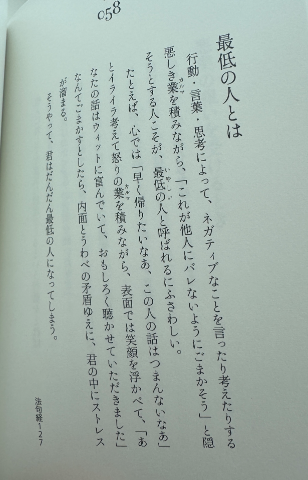 058
最低の人とは
行動・言葉・思考によって、ネガティブなことを言ったり考えたりする
悪しき業を積みながら、「これが他人にバレないようにごまかそう」と隠
そうとする人こそが、最低の人と呼ばれるにふさわしい。
たとえば、心では「早く帰りたいなあ、この人の話はつまんないなあ」
とイライラ考えて怒りの業を積みながら、表面では笑顔を浮かべて、「あ
なたの話はウィットに富んでいて、おもしろく聴かせていただきました」
なんてごまかすとしたら、内面とうわべの矛盾ゆえに、君の中にストレス
が溜まる。
そうやって、君はだんだん最低の人になってしまう。